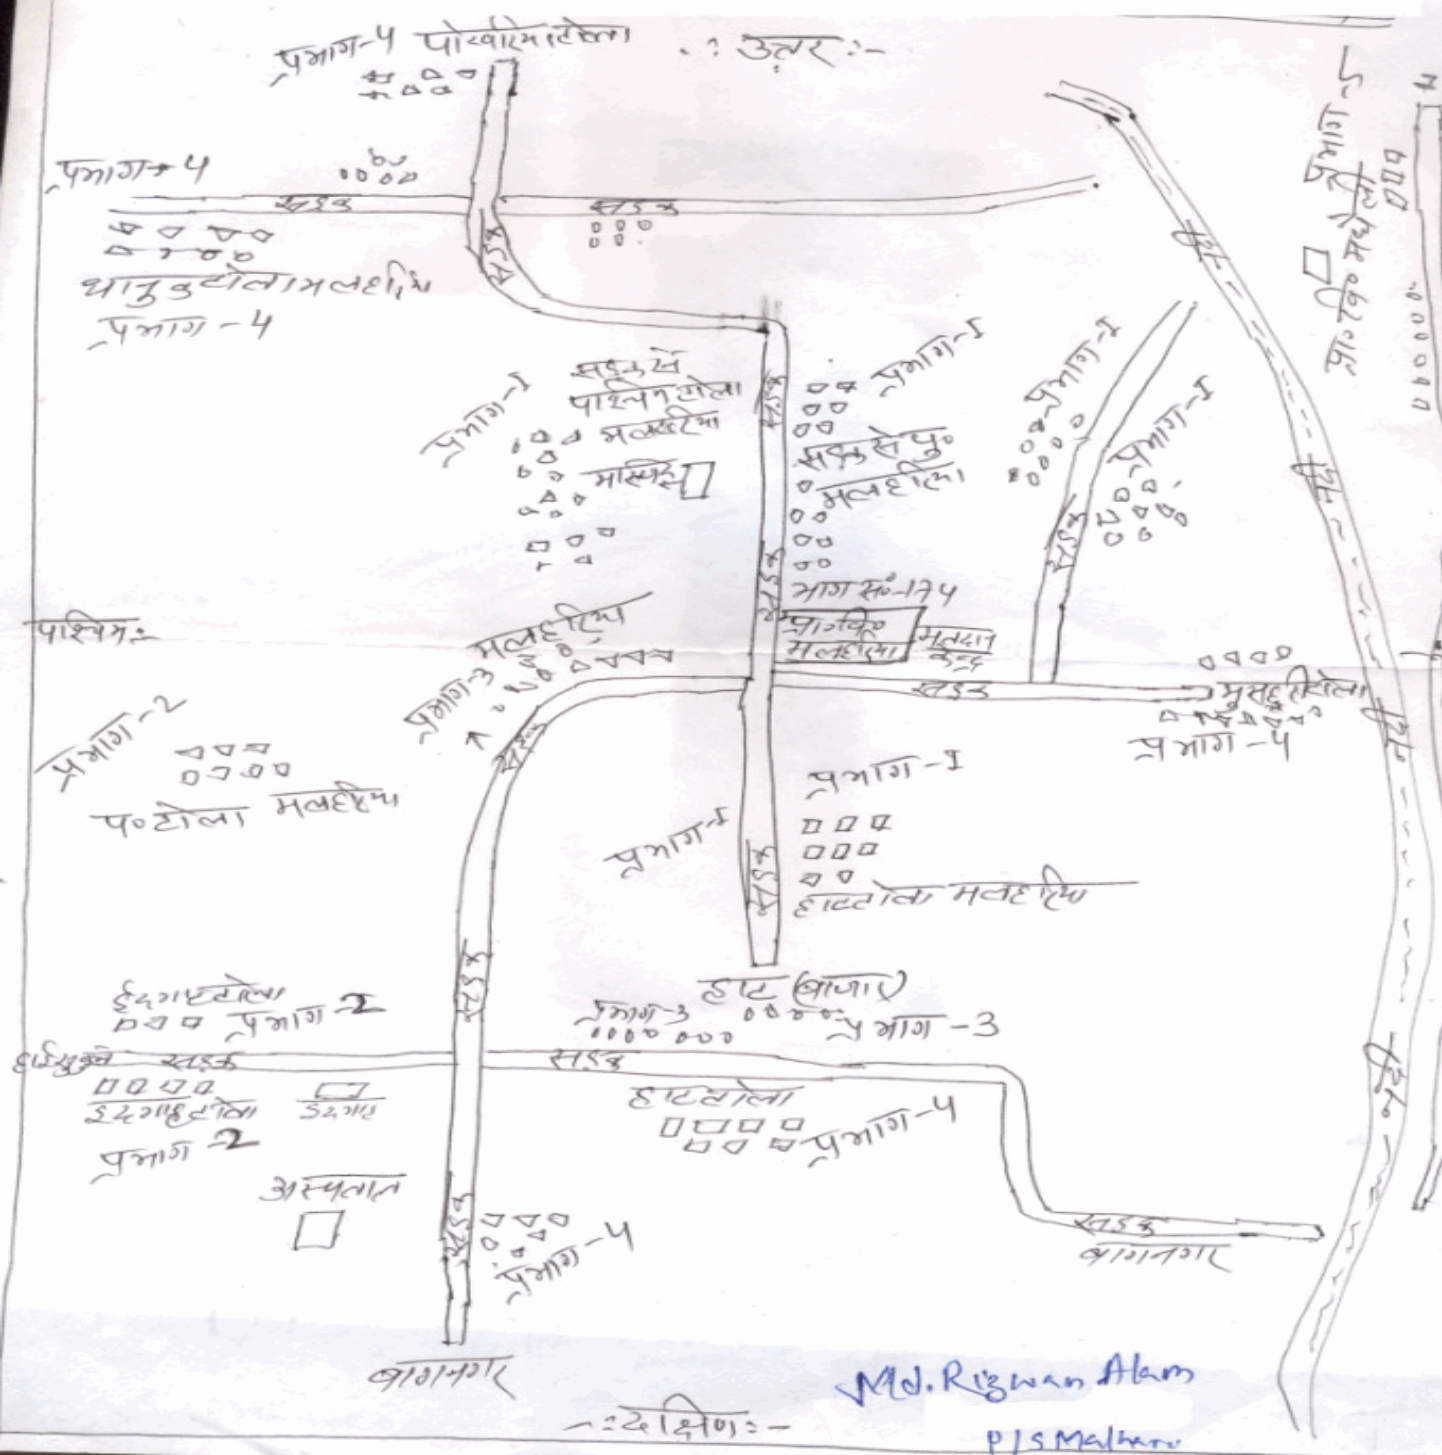 प्रभाग-4 पोखरिया टोला
-:उत्तर:-
प्रभाग-4
सड़क
सड़क
सड़क
धानुक टोला मलहरिया
प्रभाग-4
प्रभाग-5
नदी
प्रभाग-1
सड़क से
पश्चिम टोला
मलहरिया
मस्जिद
सड़क
प्रभाग-1
सड़क से पु०
मलहरिया
प्रभाग-1
प्रभाग-1
सड़क
नदी
सड़क
भाग सं०-174
प्रा०वि०
मलहरिया
मतदान
केन्द्र
पश्चिम:-
मलहरिया
प्रभाग-3
सड़क
सड़क
मुसहरी टोला
प्रभाग-4
नदी
प्रभाग-2
प० टोला मलहरिया
प्रभाग-1
प्रभाग-1
सड़क
हाट टोला मलहरिया
सड़क
हाट (बाजार)
ईदगाह टोला
प्रभाग-2
प्रभाग-3
प्रभाग-3
हाई स्कूल
सड़क
सड़क
नदी
ईदगाह टोला
ईदगाह
प्रभाग-2
हाट टोला
प्रभाग-4
अस्पताल
सड़क
प्रभाग-4
सड़क
बागनगर
बागनगर
-:दक्षिण:-
Md. Rizwan Alam